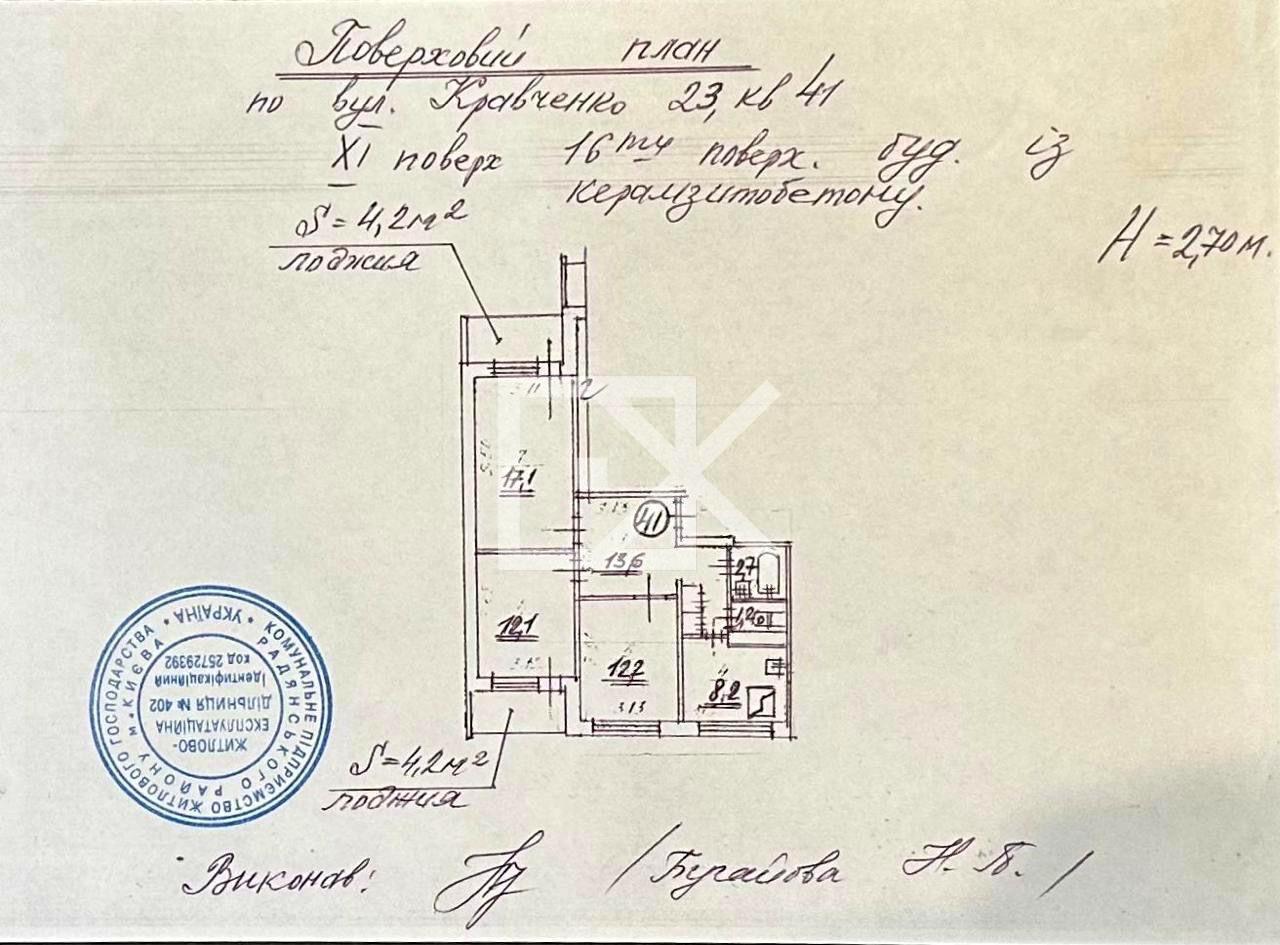 Поверховий план
по вул. Кравченко 23, кв 41
XI поверх 16ти поверх. буд. із
керамзитобетону.
S=4,2м²
лоджия
H=2,70м.
17,1
41
13,6
2,7
1,2
12,1
12,7
3.13
8,2
S=4,2м²
лоджия
КОМУНАЛЬНЕ ПІДПРИЄМСТВО ЖИТЛОВОГО ГОСПОДАРСТВА
РАДЯНСЬКОГО РАЙОНУ м. КИЄВА
* УКРАЇНА *
ЖИТЛОВО-
ЕКСПЛУАТАЦІЙНА
ДІЛЬНИЦЯ № 402
Ідентифікаційний
код 25729392
Виконав: / Бугайова Н. /